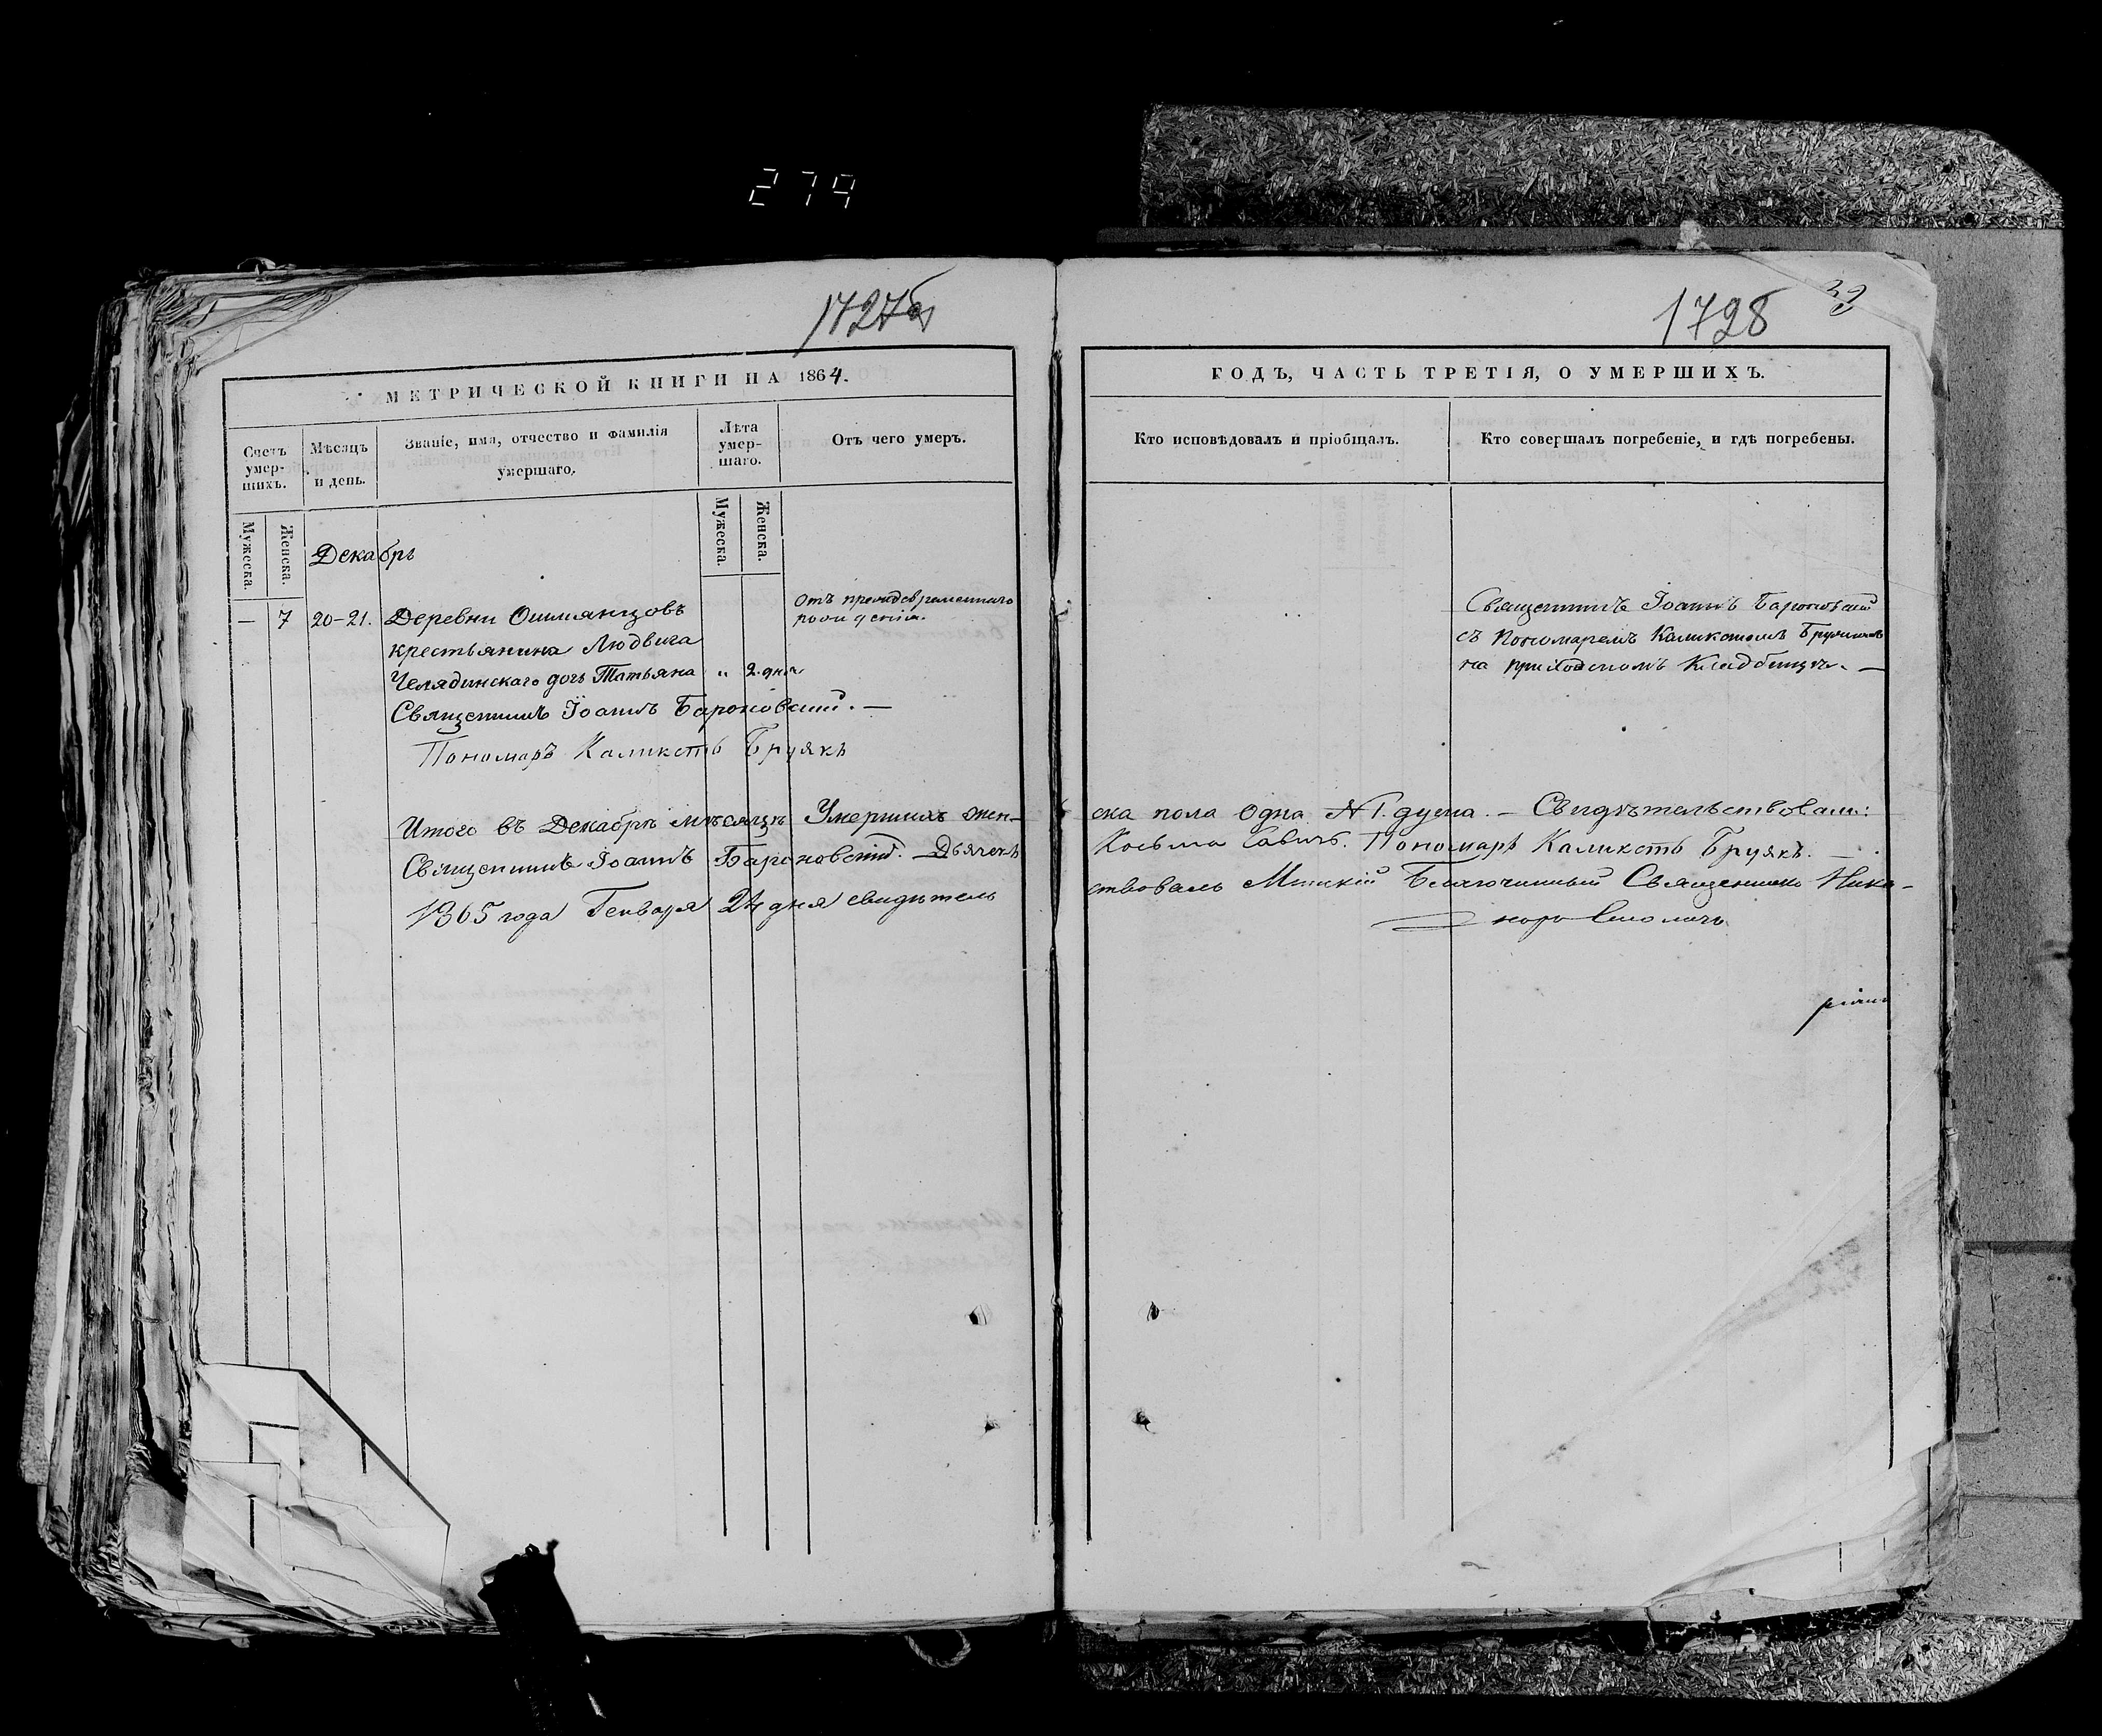 279
1727об
МЕТРИЧЕСКОЙ КНИГИ НА 1864.
Счетъ умер-шихъ.
Мѣсяцъ и день.
Званіе, имя, отчество и фамилія умершаго.
Лѣта умер-шаго.
Отъ чего умеръ.
Мужеска.
Женска.
Мужеска.
Женска.
Декабрь
— 7 20-21. Деревни Ошмянцовъ
крестьянина Людвига
Челядинскаго дочь Татьяна „ 2. дня
Отъ преждевременнаго
Священникъ Іоаннъ Бароновскій. —
Пономарь Каликстъ Бруякъ
Итого въ Декабрѣ мѣсяцѣ Умершихъ жен-
Священникъ Іоаннъ Бароновскій. — Дьячекъ
1865 года Генваря 24 дня свидѣтель
1728
39
ГОДЪ, ЧАСТЬ ТРЕТІЯ, О УМЕРШИХЪ.
Кто исповѣдовалъ и пріобщалъ.
Кто совершалъ погребеніе, и гдѣ погребены.
Священникъ Іоаннъ Бароновскій
съ Пономаремъ Каликстомъ Бруякомъ
на приходскомъ Кладбищѣ. —
ска пола одна №1. душа. — Свидѣтельствовали:
Косьма Савичъ. Пономарь Каликстъ Бруякъ. —
ствовалъ Минскій Благочинный Священникъ Ника-
норъ Смоличъ